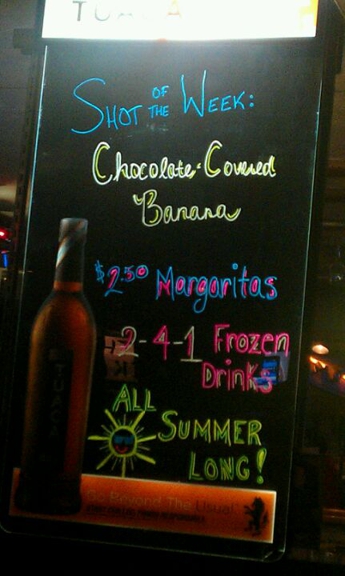 TUACA
SHOT OF THE WEEK:
Chocolate-Covered
Banana
$2.50 Margaritas
2-4-1 Frozen
Drinks
ALL
SUMMER
LONG!
Go Beyond The Usual